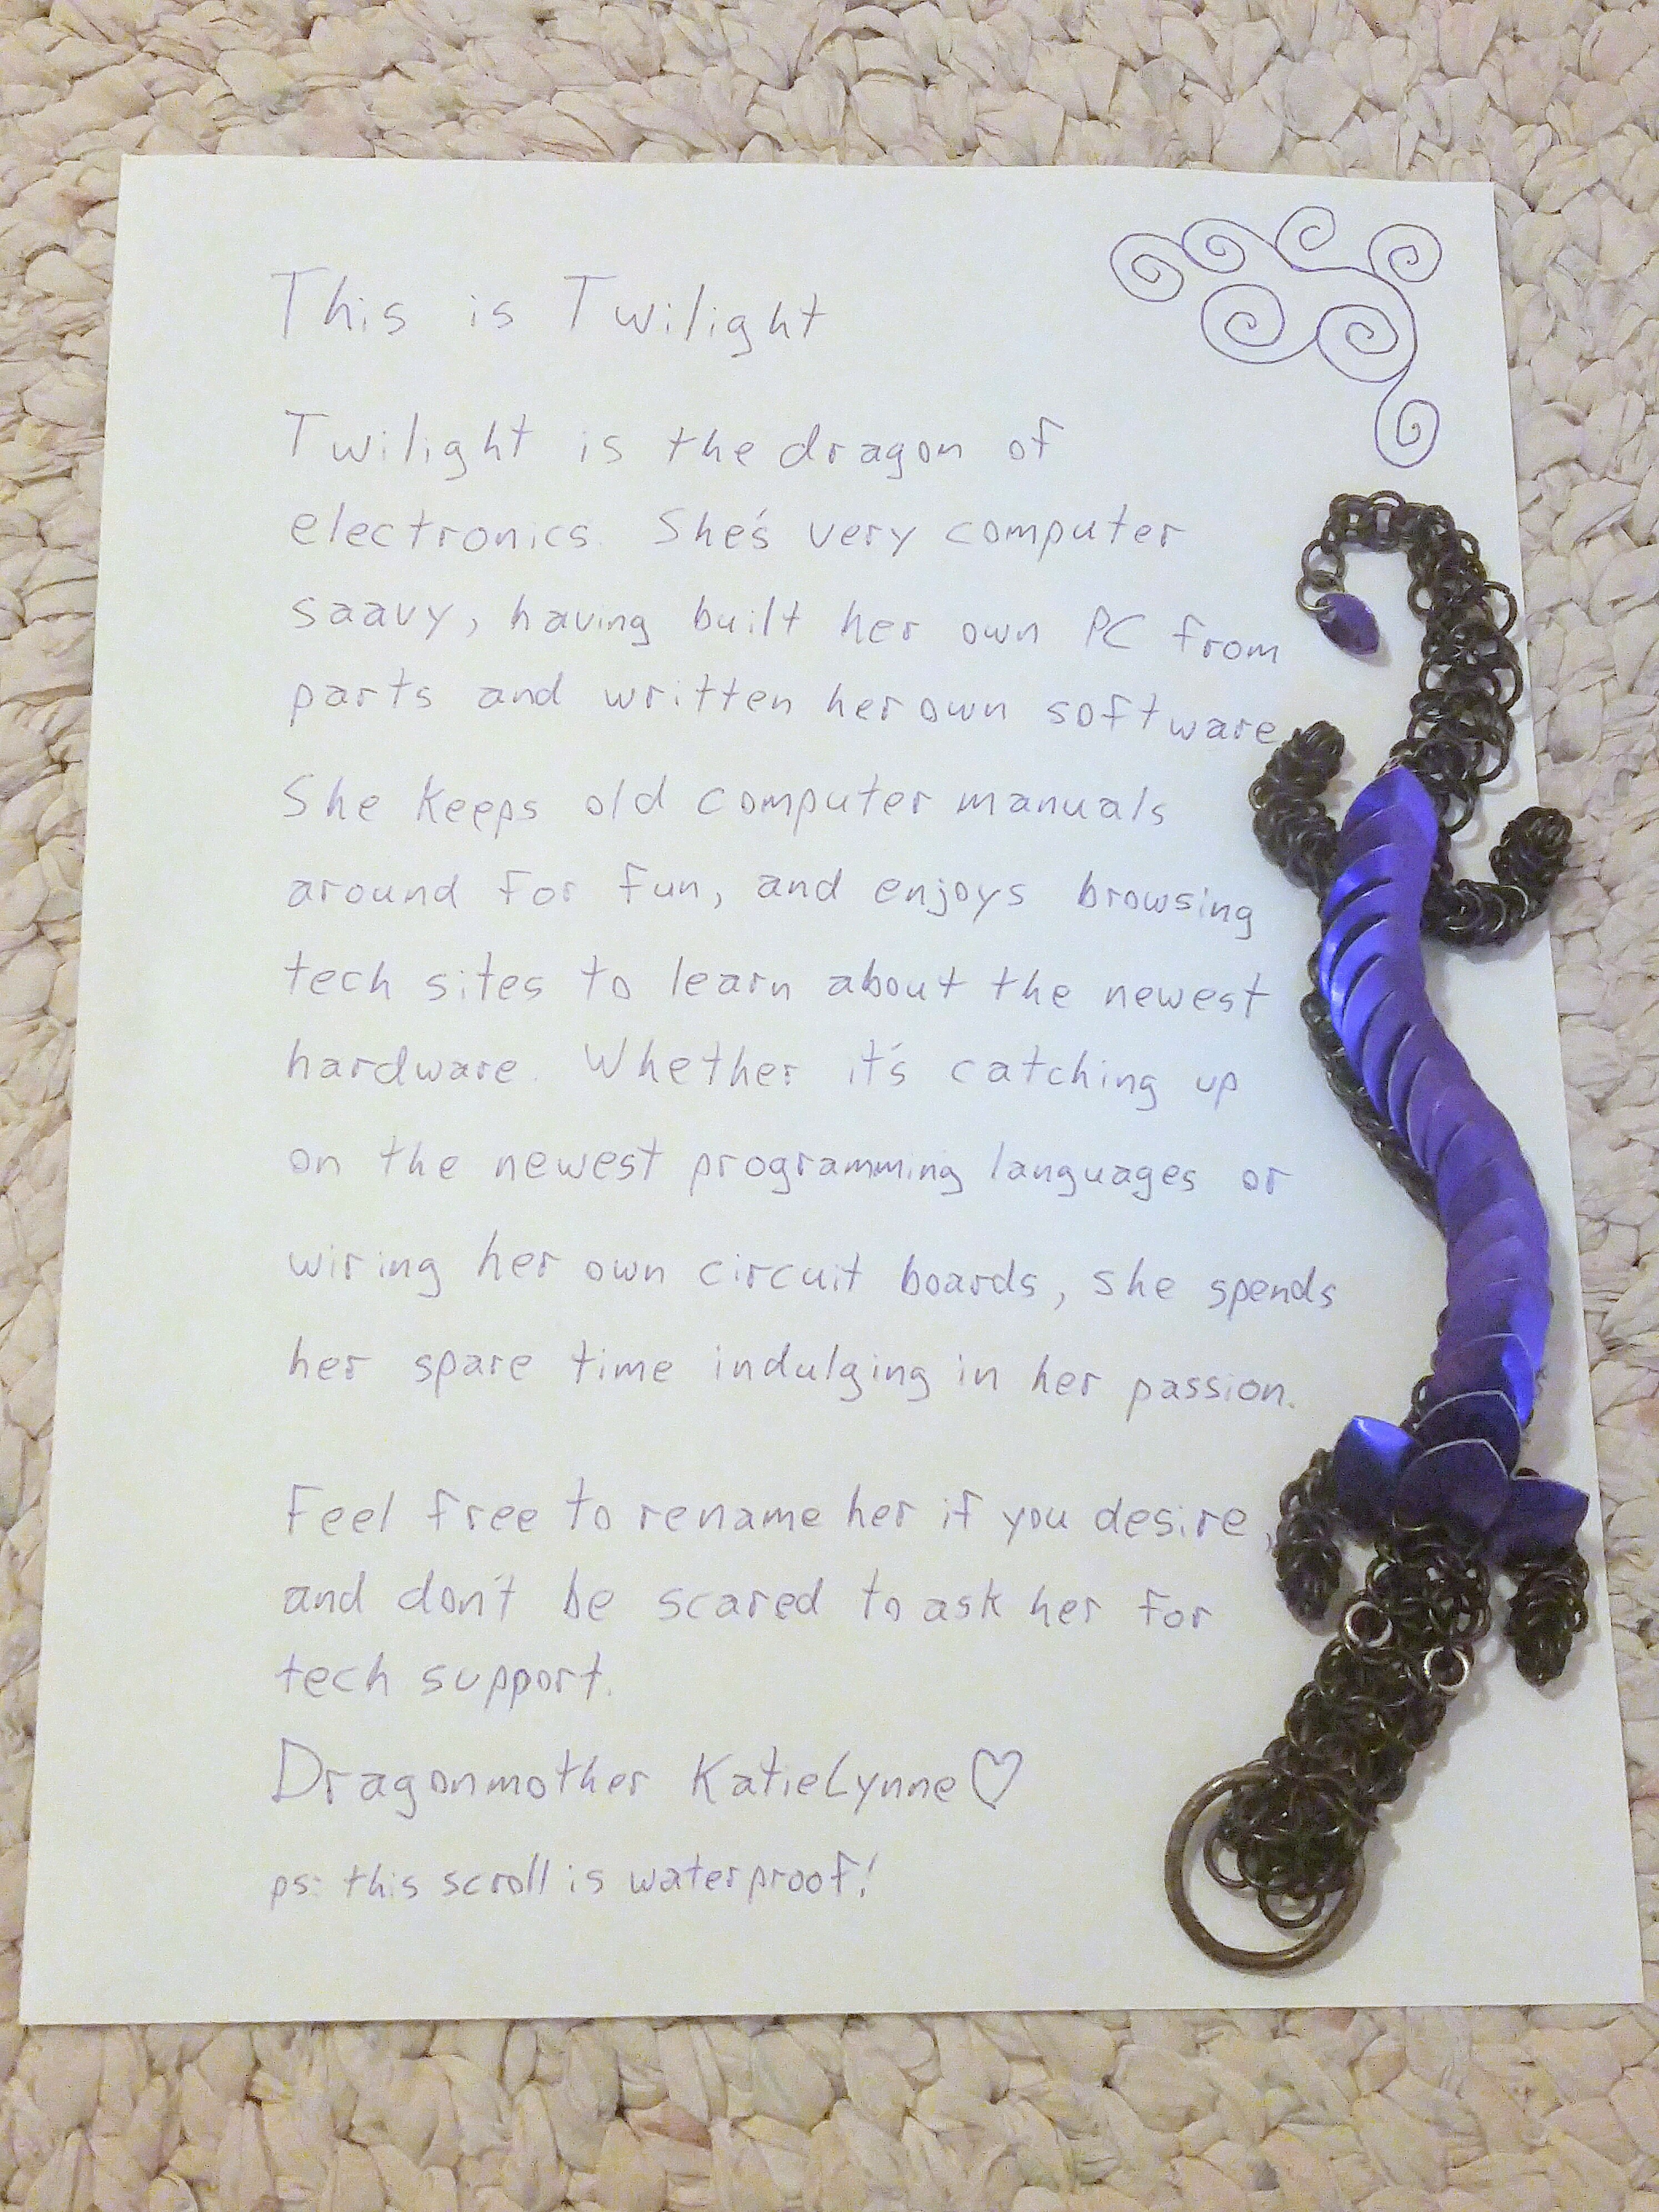 This is Twilight
Twilight is the dragon of
electronics. She's very computer
saavy, having built her own PC from
parts and written her own software.
She keeps old computer manuals
around for fun, and enjoys browsing
tech sites to learn about the newest
hardware. Whether it's catching up
on the newest programming languages or
wiring her own circuit boards, she spends
her spare time indulging in her passion.
Feel free to rename her if you desire,
and don't be scared to ask her for
tech support.
Dragonmother KatieLynne♡
ps: this scroll is waterproof!